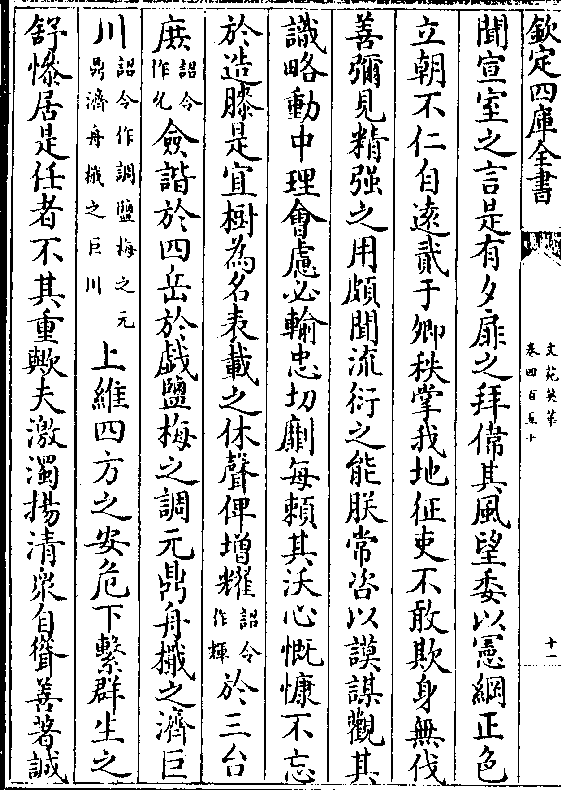 欽定四庫全書
文苑英華
卷四百五十
十一
聞宣室之言是有夕扉之拜偉其風望委以憲綱正色
立朝不仁自遠貳于卿秩掌我地征吏不敢欺身無伐
善彌見精强之用頗聞流衍之能朕常咨以謨謀觀其
識略動中理會慮必輸忠切劘每賴其沃心慨慷不忘
於造膝是宜樹為名表載之休聲俾增耀詔令作輝於三台
庶詔令作化僉諧於四岳於戲鹽梅之調元鼎舟檝之濟巨
川詔令作調鹽梅之元鼎濟舟檝之巨川上維四方之安危下繫群生之
舒慘居是任者不其重歟夫激濁揚清衆自聳善著誠